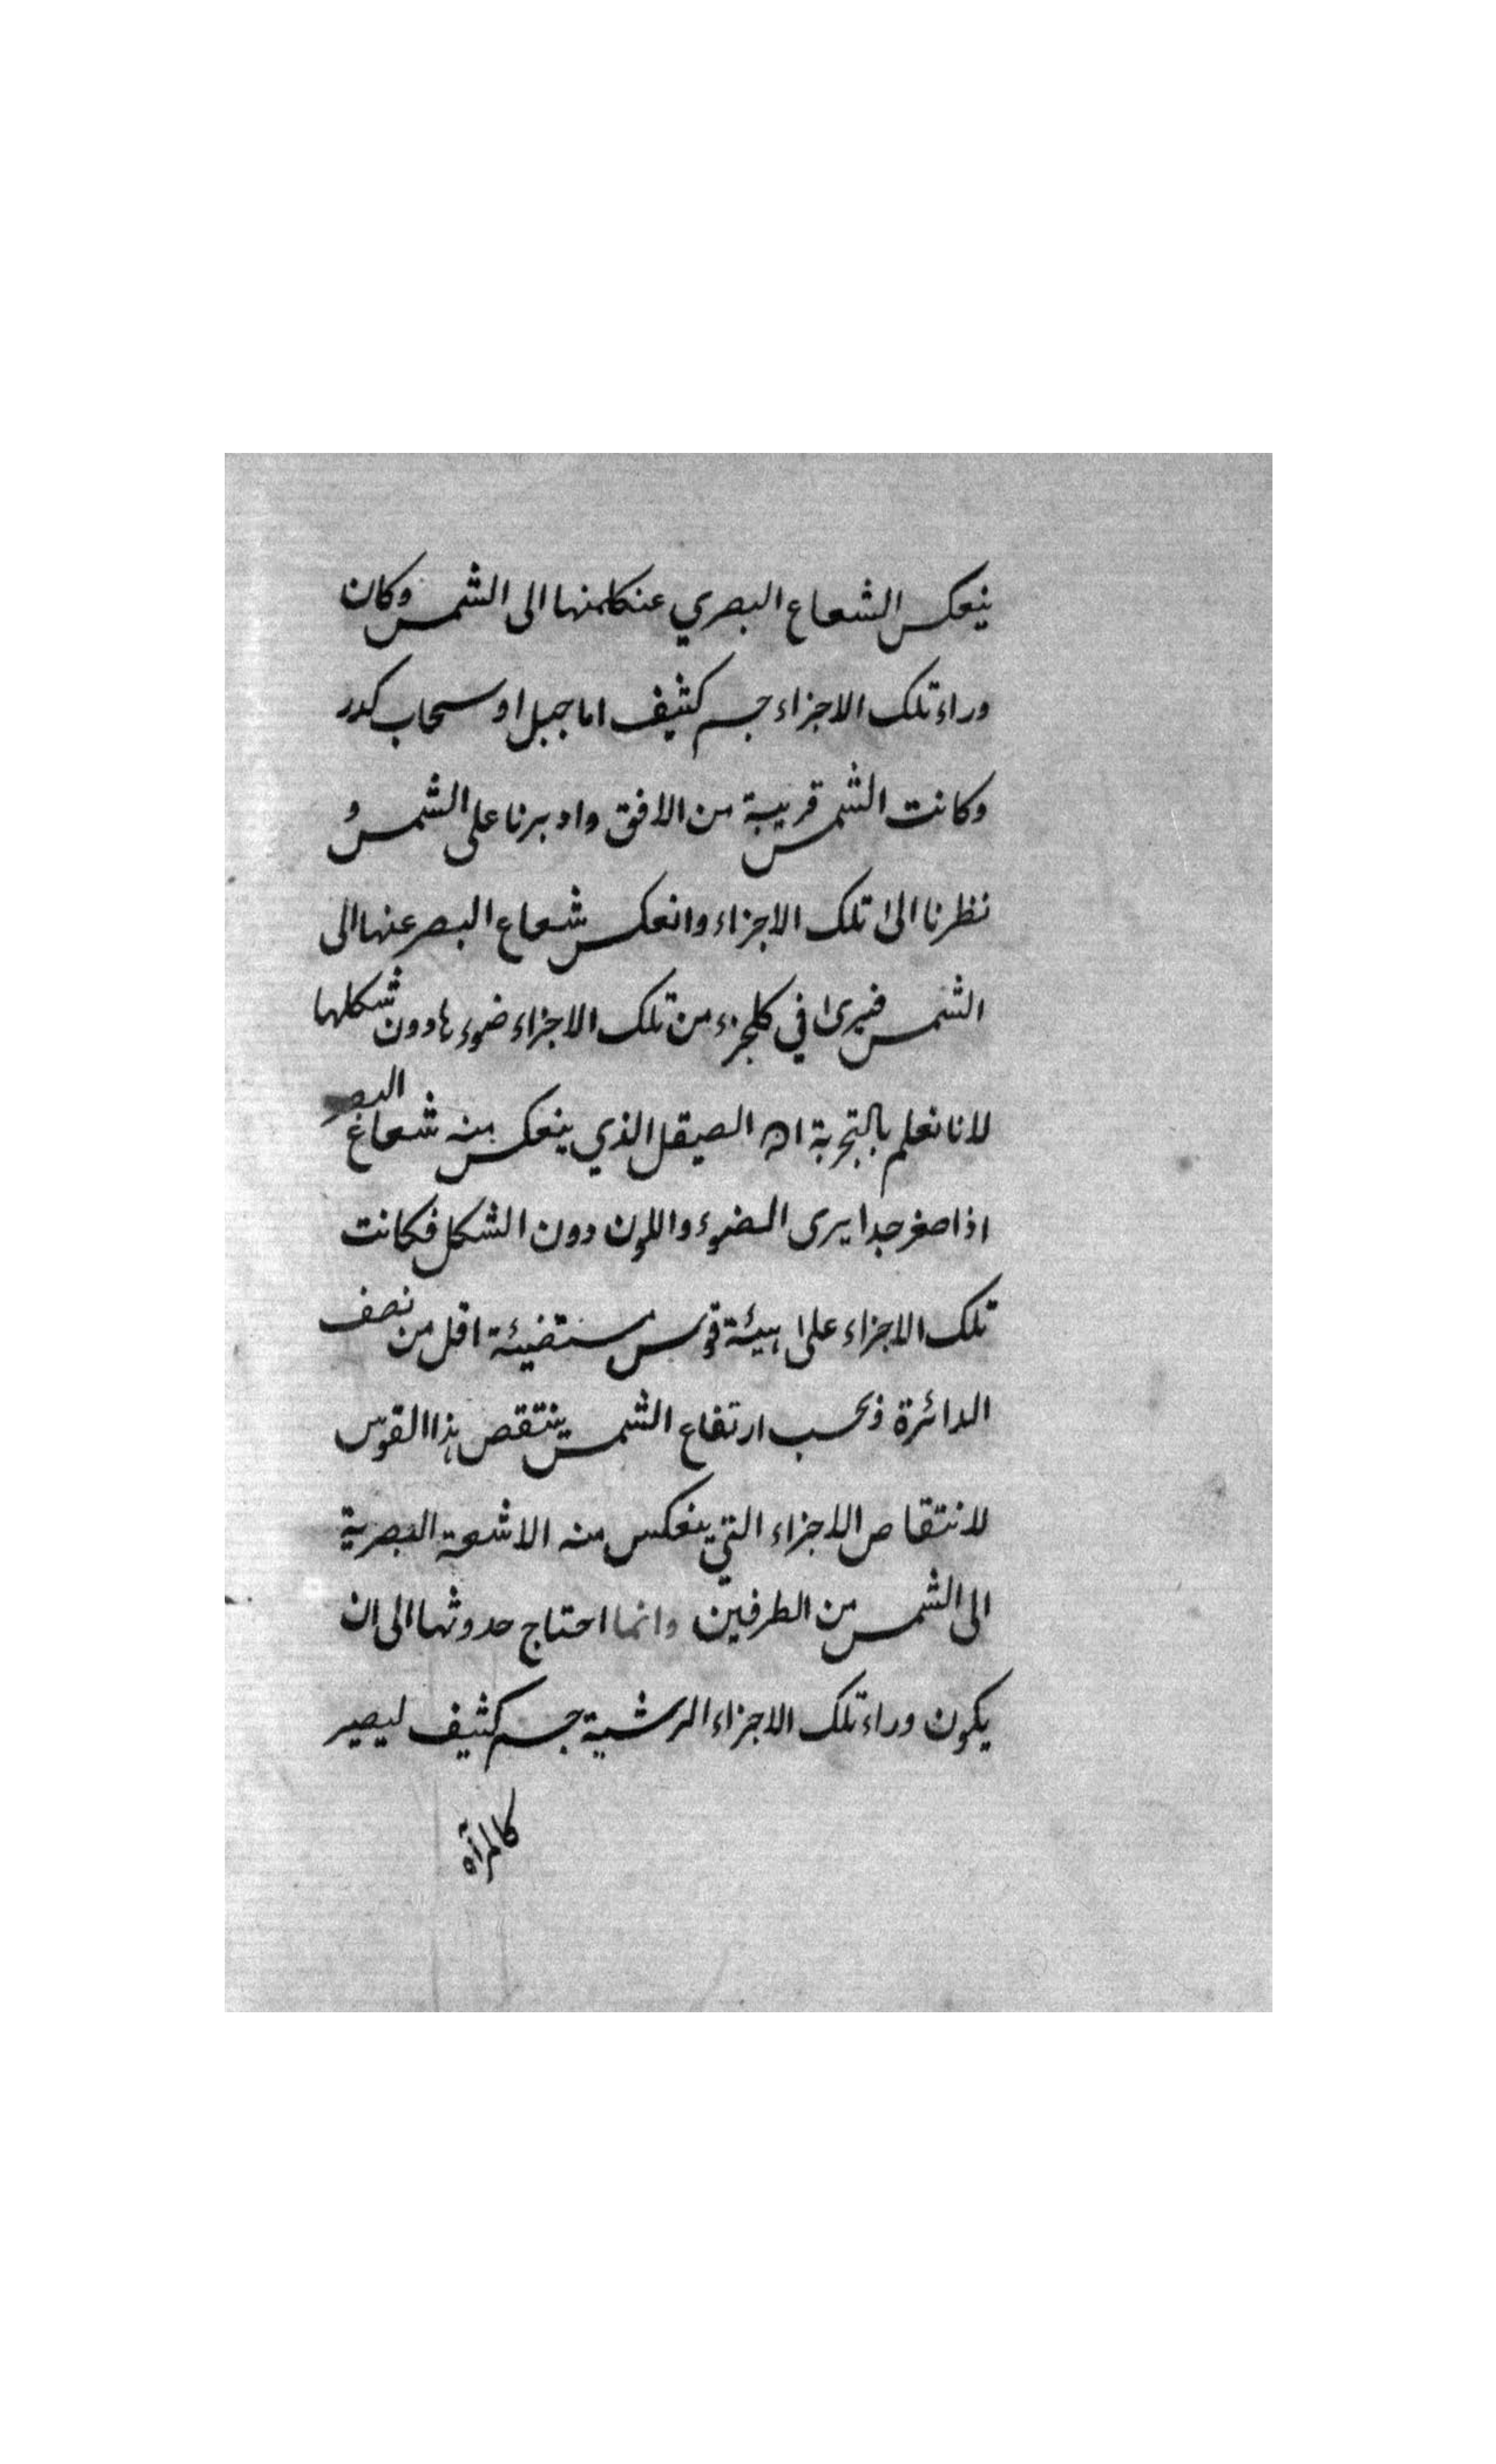 ينعكس الشعاع البصري عنكلمنها الى الشمس وكان
وراء تلك الاجزاء جسم كثيف اما جبل او سحاب كدر
وكانت الشمس قريبة من الافق وادبرنا على الشمس و
نظرنا الى تلك الاجزاء وانعكس شعاع البصر عنها الى
الشمس فيرى في كلجزء من تلك الاجزاء ضوءها دون شكلها
لانا نعلم بالتجربة ان الصيقل الذي ينعكس منه شعاع البصر
اذا صغر جدا يرى الضوء واللون دون الشكل فكانت
تلك الاجزاء على هيئة قوس مستضيئة اقل من نصف
الدائرة وبحسب ارتفاع الشمس ينتقص هذا القوس
لانتقاص الاجزاء التي ينعكس منه الاشعة البصرية
الى الشمس من الطرفين وانما احتاج حدوثها الى ان
يكون وراء تلك الاجزاء الرشية جسم كثيف ليصير
كالمرآه